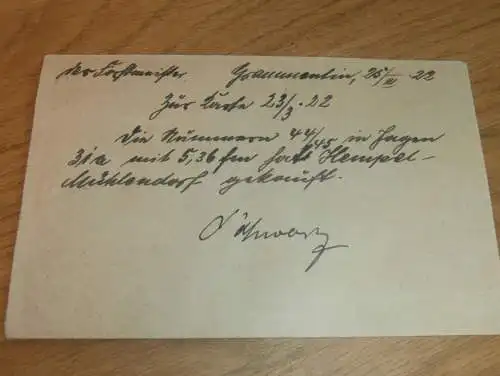 Der Forstmeister. Grammentin, 25/III 22
Zur Karte 23/3.22
Die Nummern 44/45 in Jagen
31a mit 5,36 fm hat Hempel-
Mühlendorf gekauft.
Schwarz